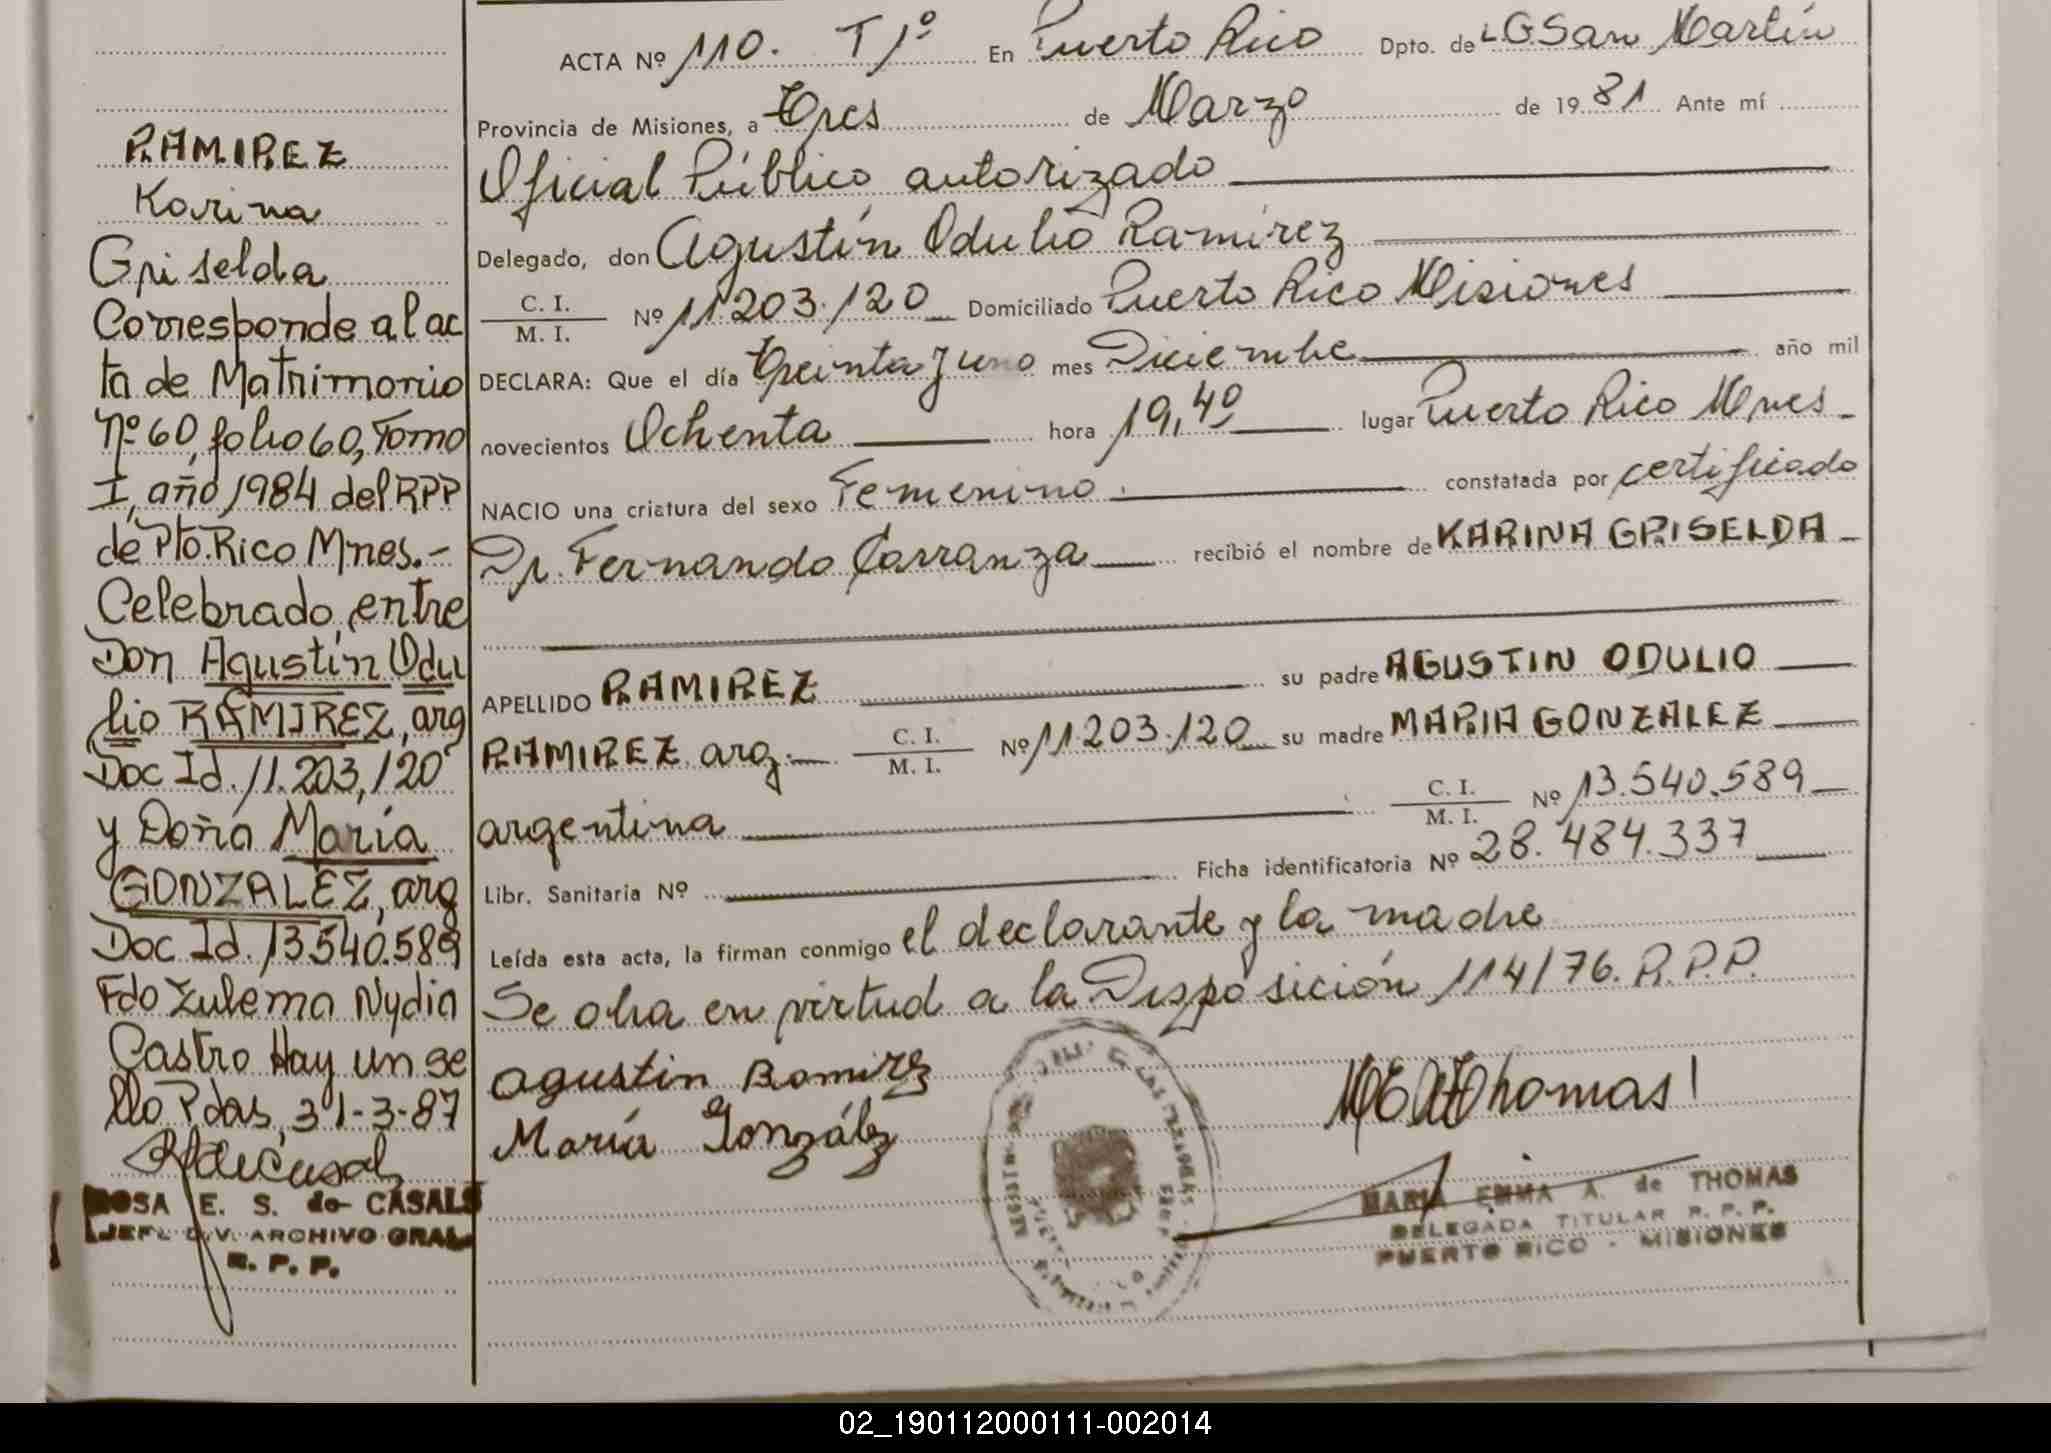 RAMIREZ
Karina
Griselda
Corresponde al ac
ta de Matrimonio
Nº 60, folio 60, Tomo
I, año 1984 del RPP
de Pto. Rico Mnes.-
Celebrado, entre
Don Agustín Odu
lio RAMIREZ, arg
Doc Id. 11.203,120
y Doña María
GONZALEZ, arg
Doc Id. 13.540.589
Fdo Zulema Nydia
Castro Hay un se
llo P.das, 31-3-87
ROSA E. S. de CASALS
JEFE DIV. ARCHIVO GRAL
R. P. P.
ACTA Nº 110. T 1º En Puerto Rico Dpto. de L G. San Martín
Provincia de Misiones, a Tres de Marzo de 1981 Ante mí
Oficial Público autorizado
Delegado, don Agustín Odulio Ramírez
C. I. / M. I. Nº 11.203.120 Domiciliado Puerto Rico Misiones
DECLARA: Que el día Treinta y uno mes Diciembre año mil
novecientos Ochenta hora 19,40 lugar Puerto Rico Mnes
NACIO una criatura del sexo Femenino. constatada por certificado
Dr. Fernando Carranza recibió el nombre de KARINA GRISELDA
APELLIDO RAMIREZ su padre AGUSTIN ODULIO
RAMIREZ arg. C. I. / M. I. Nº 11.203.120 su madre MARIA GONZALEZ
argentina C. I. / M. I. Nº 13.540.589
Libr. Sanitaria Nº Ficha identificatoria Nº 28.484.337
Leída esta acta, la firman conmigo el declarante y la madre
Se obra en virtud a la Disposición 114/76. R.P.P.
agustin Ramirez
María González
MARIA EMMA A. de THOMAS
DELEGADA TITULAR R. P. P.
PUERTO RICO - MISIONES
02_190112000111-002014